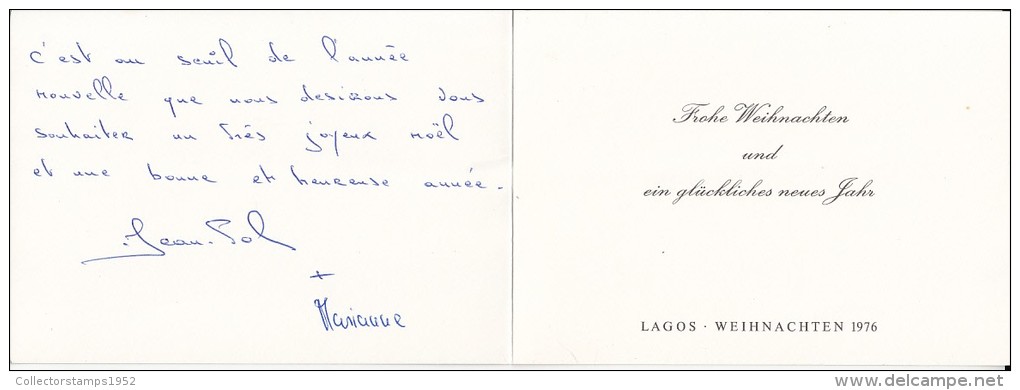 c'est au seuil de l'année
nouvelle que nous desirons vous
souhaiter un très joyeux noël
et une bonne et heureuse année.
Jean-Pol
+
Marianne
Frohe Weihnachten
und
ein glückliches neues Jahr
LAGOS · WEIHNACHTEN 1976
Collectorstamps1952
delcampe.net